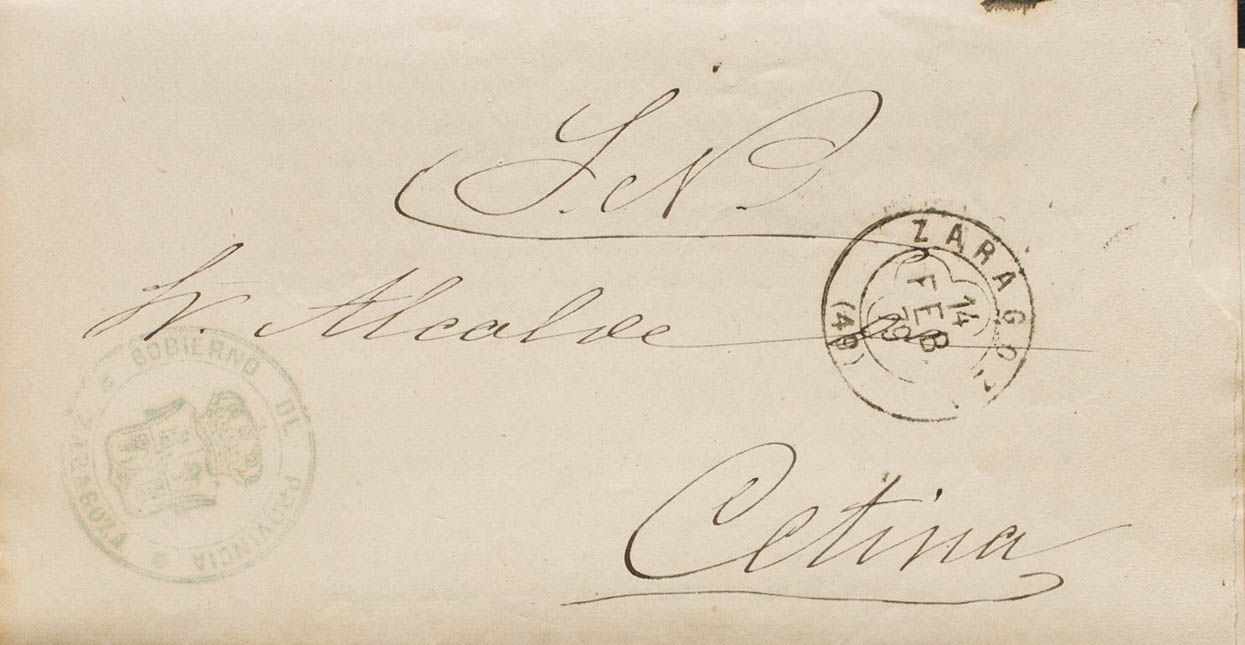 S. N.
Sr. Alcalde
Cetina
ZARAGOZA
14
FEB
79
(49)
GOBIERNO DE PROVINCIA
ZARAGOZA